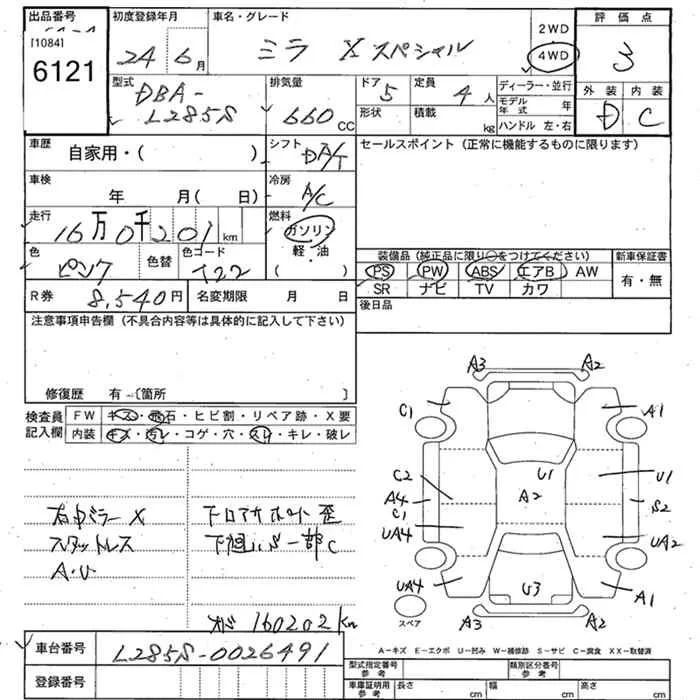 出品番号 初度登録年月 車名・グレード 評価点
[1084]
6121
24年6月 ミラ Xスペシャル 2WD 4WD 3
型式 DBA- L285S 排気量 660 CC ドア 5 定員 4人 ディーラー・並行 外装 内装
形状 積載 kg モデル年式 年 D C
ハンドル 左・右
車歴 自家用・( ) シフト DA/T セールスポイント (正常に機能するものに限ります)
車検 年 月(日) 冷房 A/C
走行 16万0千201 km 燃料 ガソリン
軽・油
( )
色 ピンク 色替 色コード T22
装備品 (純正品に限り○をつけてください) 新車保証書
PS PW ABS エアB AW 有・無
SR ナビ TV カワ
R券 8,540円 名変期限 月 日 後日品
注意事項申告欄 (不具合内容等は具体的に記入して下さい)
修復歴 有-〔箇所 〕
検査員記入欄 FW キズ・飛石・ヒビ割・リペア跡・X要
内装 キズ・汚レ・コゲ・穴・スレ・キレ・破レ
右ドアミラーX
スタットレス
A.U
下回りS一部C
メーター 160202km
A3 A2
C1 A1
C2 U1 U1
A4 A2 S2
C1
UA4 UA2
UA4 U3 A1
スペア A3 A2
A-キズ E-エクボ U-凹み W-補修跡 S-サビ C-腐食 XX-取替済
車台番号 L285S-0026491
登録番号
型式指定番号 参考 類別区分番号 参考
車庫証明用 参考 長さ cm 幅 cm 高さ cm